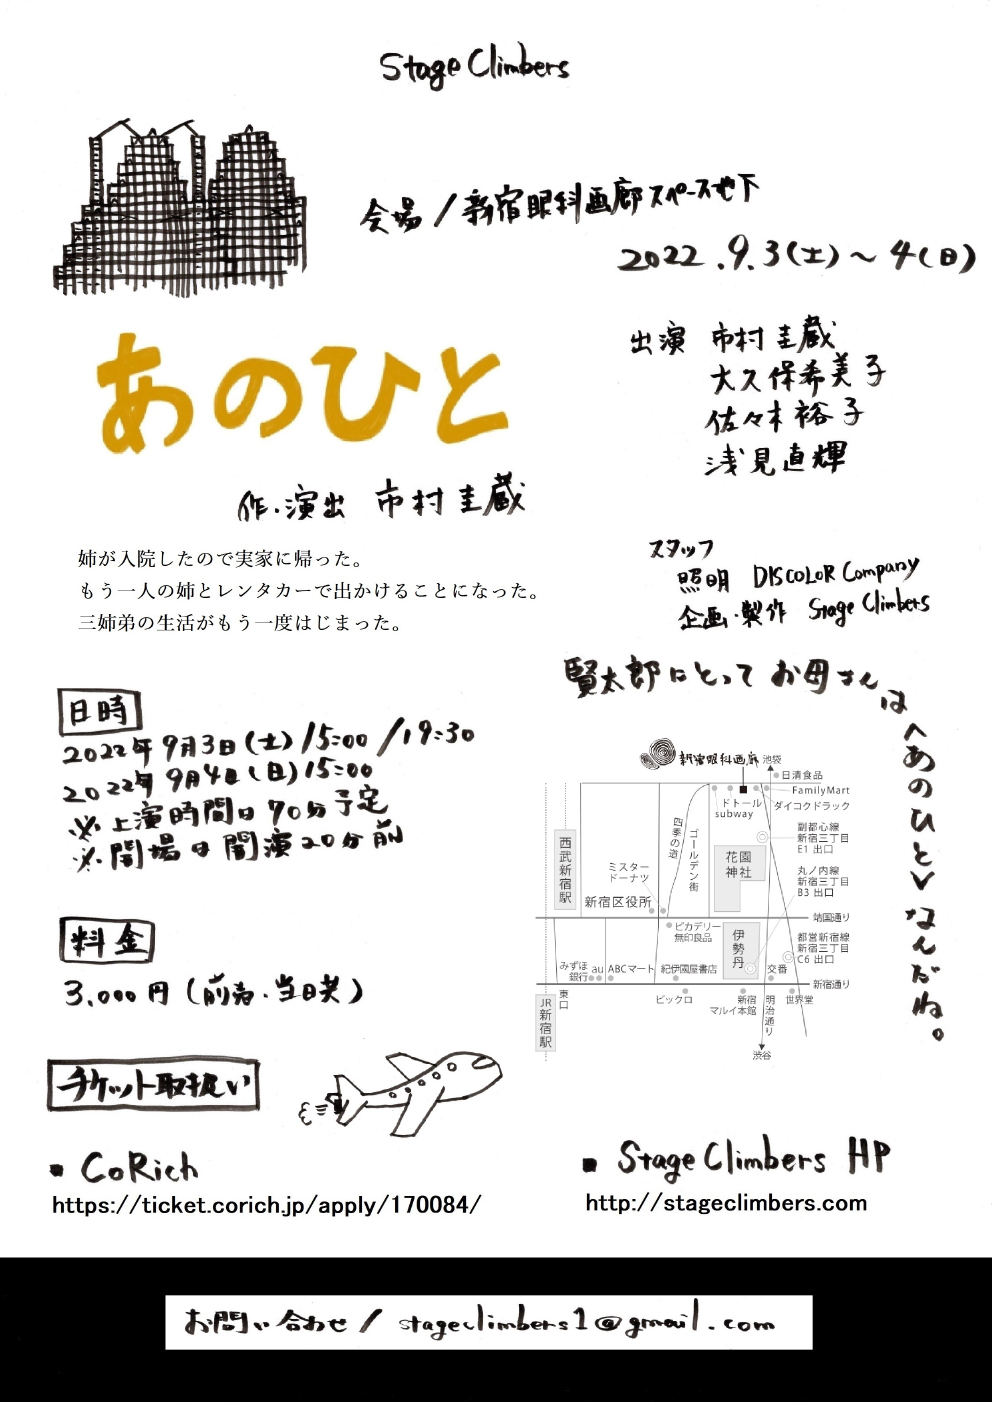 Stage Climbers
会場/新宿眼科画廊スペース地下
2022.9.3(土)～4(日)
あのひと
作・演出 市村圭蔵
出演 市村圭蔵
大久保希美子
佐々木裕子
浅見直輝
姉が入院したので実家に帰った。
もう一人の姉とレンタカーで出かけることになった。
三姉弟の生活がもう一度はじまった。
スタッフ
照明 DISCOLOR Company
企画・製作 Stage Climbers
賢太郎にとってお母さんは〈あのひと〉なんだね。
日時
2022年9月3日(土)15:00/19:30
2022年9月4日(日)15:00
※上演時間は70分予定
※開場は開演20分前
料金
3,000円(前売・当日共)
新宿眼科画廊
池袋
日清食品
FamilyMart
ドトール
subway
ダイコクドラック
四季の道
ゴールデン街
副都心線
新宿三丁目
E1 出口
西武新宿駅
花園
神社
ミスター
ドーナツ
丸ノ内線
新宿三丁目
B3 出口
新宿区役所
靖国通り
ピカデリー
無印良品
伊勢丹
都営新宿線
新宿三丁目
C6 出口
みずほ
銀行
au
ABCマート
紀伊國屋書店
交番
新宿通り
JR新宿駅
東口
ビックロ
新宿
マルイ本館
明治通り
世界堂
渋谷
チケット取扱い
■ CoRich
https://ticket.corich.jp/apply/170084/
■ Stage Climbers HP
http://stageclimbers.com
お問い合わせ/stageclimbers1@gmail.com